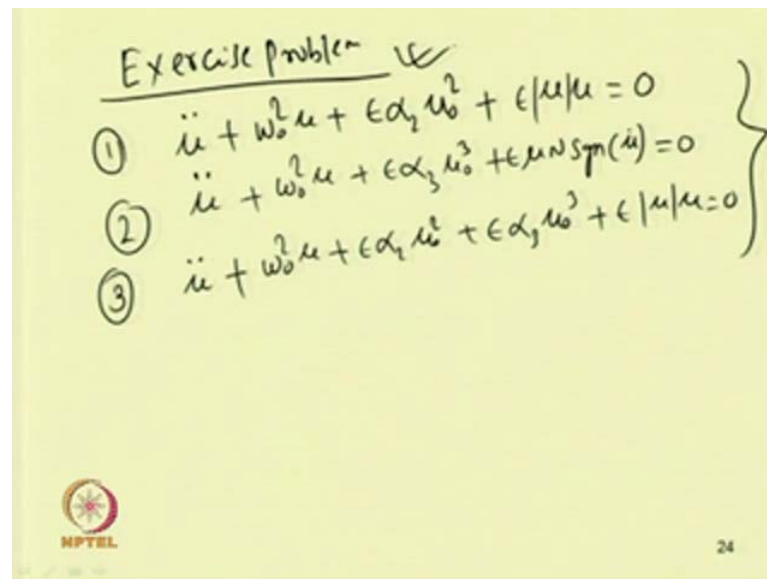 Exercise problem
① ü + ω₀²u + ϵα₂u₀² + ϵ|u|u = 0
② ü + ω₀²u + ϵα₃u₀³ + ϵμN sgn(u̇) = 0
③ ü + ω₀²u + ϵα₂u₀² + ϵα₃u₀³ + ϵ|u|u = 0
NPTEL
24